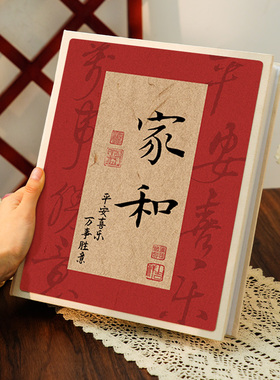 家和
平安喜乐
万事胜意
平安喜乐
万事胜意